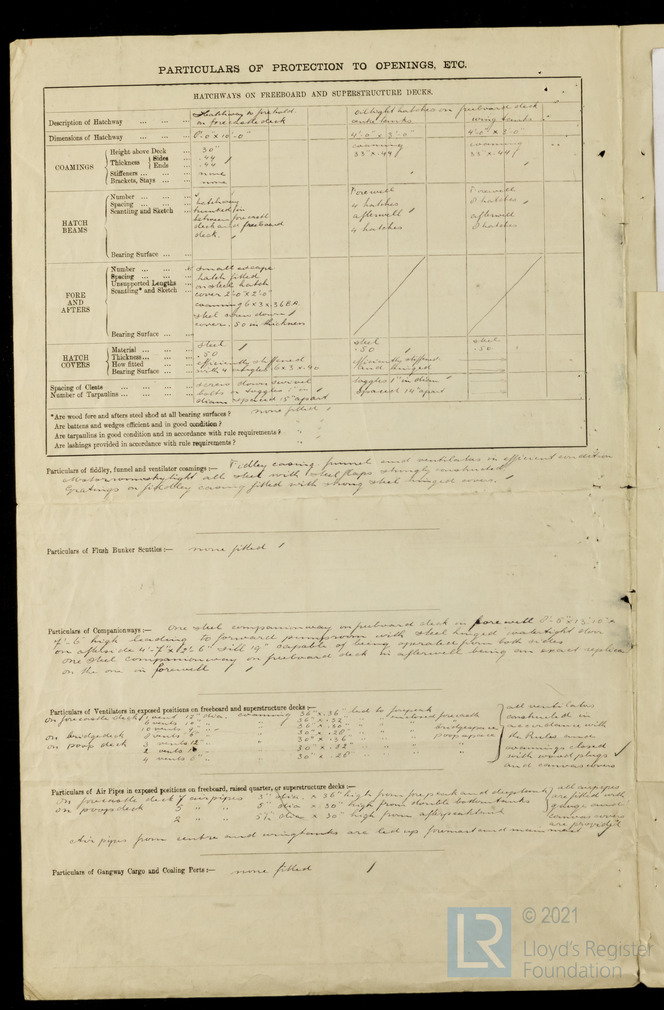 PARTICULARS OF PROTECTION TO OPENINGS, ETC.
HATCHWAYS ON FREEBOARD AND SUPERSTRUCTURE DECKS.
Description of Hatchway ... ... ... Hatchway to forehold on forecastle deck
Oiltight hatches on freeboard deck
wing tanks
Dimensions of Hatchway ... ... × 10'-0" 4'-0" × 3'-0" 4'-0" × 3'-0"
COAMINGS
Height above Deck ... 30" coaming coaming
Thickness { Sides ... .44 33" × .44 33" × .44
Ends ... .44
Stiffeners ... ... ... none
Brackets, Stays ... ... none
HATCH BEAMS
Number ... ... ... hatchway Forewell Forewell
Spacing ... ... ... trunked in 4 hatches 8 hatches
Scantling and Sketch between forewell afterwell afterwell
deck and freeboard 4 hatches 8 hatches
deck.
Bearing Surface ... ...
FORE AND AFTERS
Number ... ... ... small escape
Spacing ... ... ... hatch fitted
Unsupported Lengths on steel hatch
Scantling* and Sketch ... cover 2'-0" × 2'-0"
coaming 6 × 3 × .36 B.A.
steel screw down
cover .50 in thickness
Bearing Surface ... ...
HATCH COVERS
Material ... ... ... steel steel steel
Thickness ... ... ... .50 .50 .50
How fitted ... ... efficiently stiffened efficiently stiffened
Bearing Surface ... ... with 4 angles 6 × 3 × .40 and hinged
Spacing of Cleats ... ... ... ... screw down swivel toggles 1" in diam
Number of Tarpaulins ... ... ... ... bolts or toggles 1" in spaced 14" apart
diam spaced 15" apart
*Are wood fore and afters steel shod at all bearing surfaces? none fitted
Are battens and wedges efficient and in good condition? "
Are tarpaulins in good condition and in accordance with rule requirements? "
Are lashings provided in accordance with rule requirements? "
Particulars of fiddley, funnel and ventilator coamings:— Fidley casing funnel and ventilators in efficient condition
Motor room skylight all steel with steel flaps strongly constructed
Gratings on fiddley casing fitted with strong steel hinged covers.
Particulars of Flush Bunker Scuttles:— none fitted
Particulars of Companionways:— One steel companionway on freeboard deck in forewell
high leading to forward pumproom with steel hinged watertight door
on aftside sill 19" capable of being operated from both sides
one steel companionway on freeboard deck in afterwell being an exact replica
on the one in forewell
Particulars of Ventilators in exposed positions on freeboard and superstructure decks:—
on forecastle deck 1 vent 12" dia. coaming 36" × .36" led to forepeak
enclosed forecastle
on bridgedeck bridgespace
on poop deck 3 vents 12" poop space
2 vents
4 vents
all ventilators
constructed in
accordance with
the Rules and
coamings closed
with wood plugs
and canvas covers
Particulars of Air Pipes in exposed positions on freeboard, raised quarter, or superstructure decks:—
on forecastle deck 7 air pipes 3" dia. × 36" high from forepeak and deep tank
on poop deck 5" dia × 30" high from double bottom tanks
2 " " dia × 30" high from afterpeak tank
all airpipes
are fitted with
plugs and
canvas covers
are provided
Air pipes from centre and wing tanks are led up foremast and mainmast
Particulars of Gangway Cargo and Coaling Ports:— none fitted
LR
© 2021
Lloyd's Register
Foundation